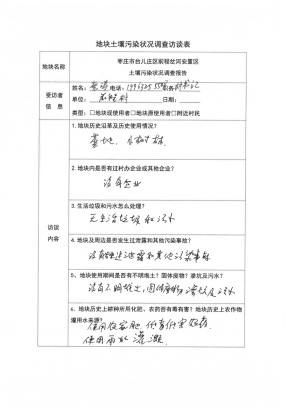 地块土壤污染状况调查访谈表
地块名称
枣庄市台儿庄区前程岔河安置区
土壤污染状况调查报告
受访者
信 息
姓名: 电话: 职务:
单位:
类型: □地块现使用者□地块原使用者□附近村民
访谈
内容
1、地块历史沿革及历史使用情况?
2、地块内是否有过村办企业或其他企业?
没有企业
3、生活垃圾和污水怎么处理?
无生活垃圾和污水
4、地块及周边是否发生过泄露和其他污染事故?
没有发生过泄露和其他污染事故
5、地块使用期间是否有不明堆土? 固体废物? 渗坑及污水?
没有不明堆土, 固体废物 渗坑及污水
6、地块历史上耕种所用化肥、农药否有毒有害? 地块历史上农作物
灌用水来源?
使用农家肥, 低毒低害农药.
使用雨水灌溉.